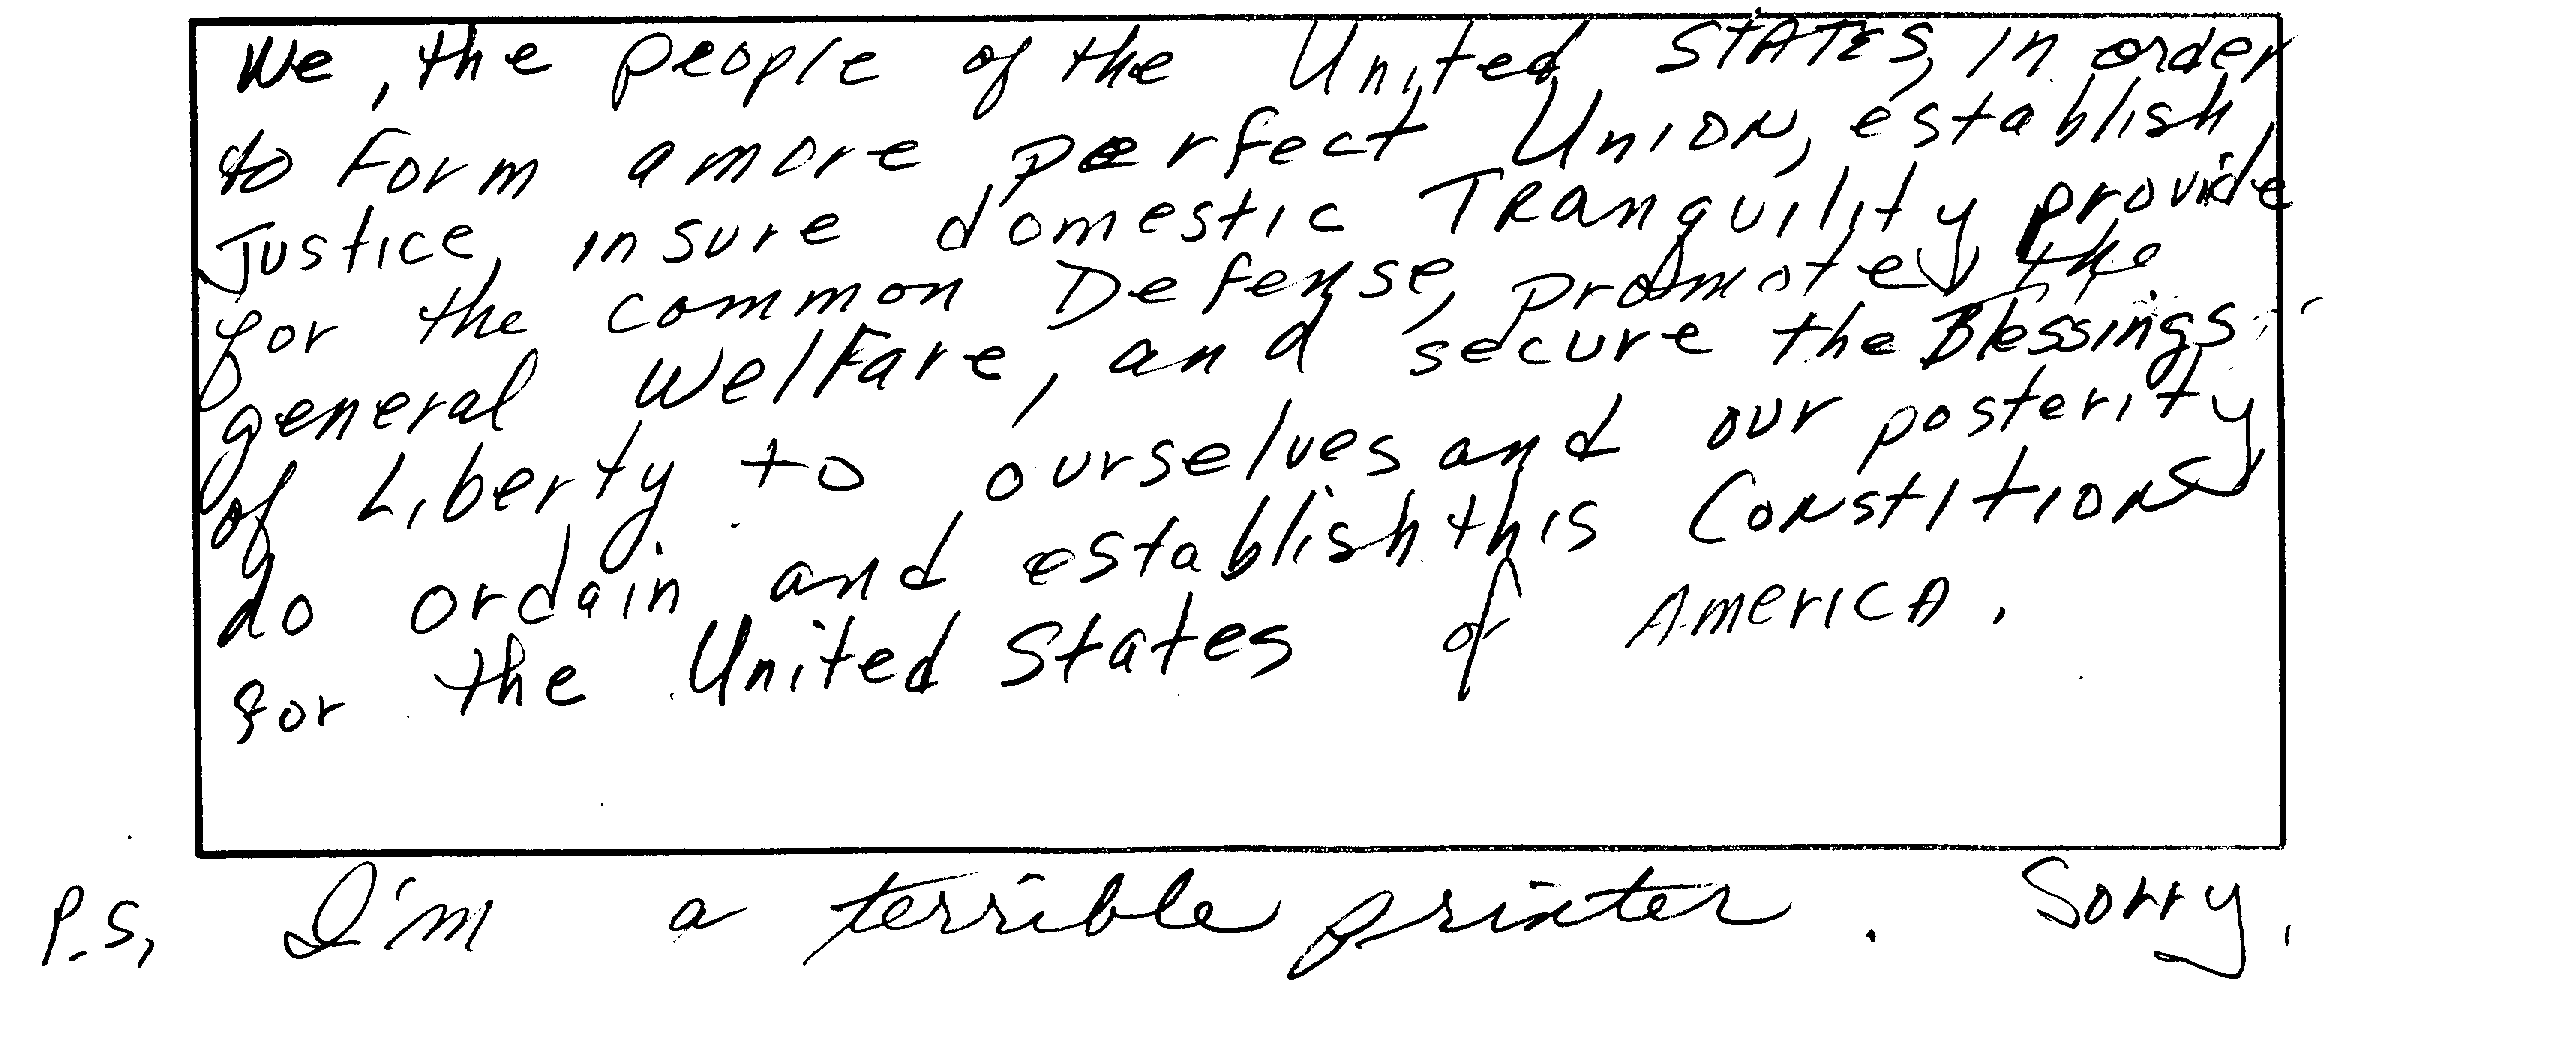 We, the people of the United STATES, in order
to Form a more perfect Union, establish
Justice, insure domestic TRanquility provide
for the common Defense, promote the
general Welfare, and secure the Blessings
of Liberty to ourselves and our posterity
do ordain and establish this Constition
for the United States of America.
P.S, I'm a terrible printer. Sorry.